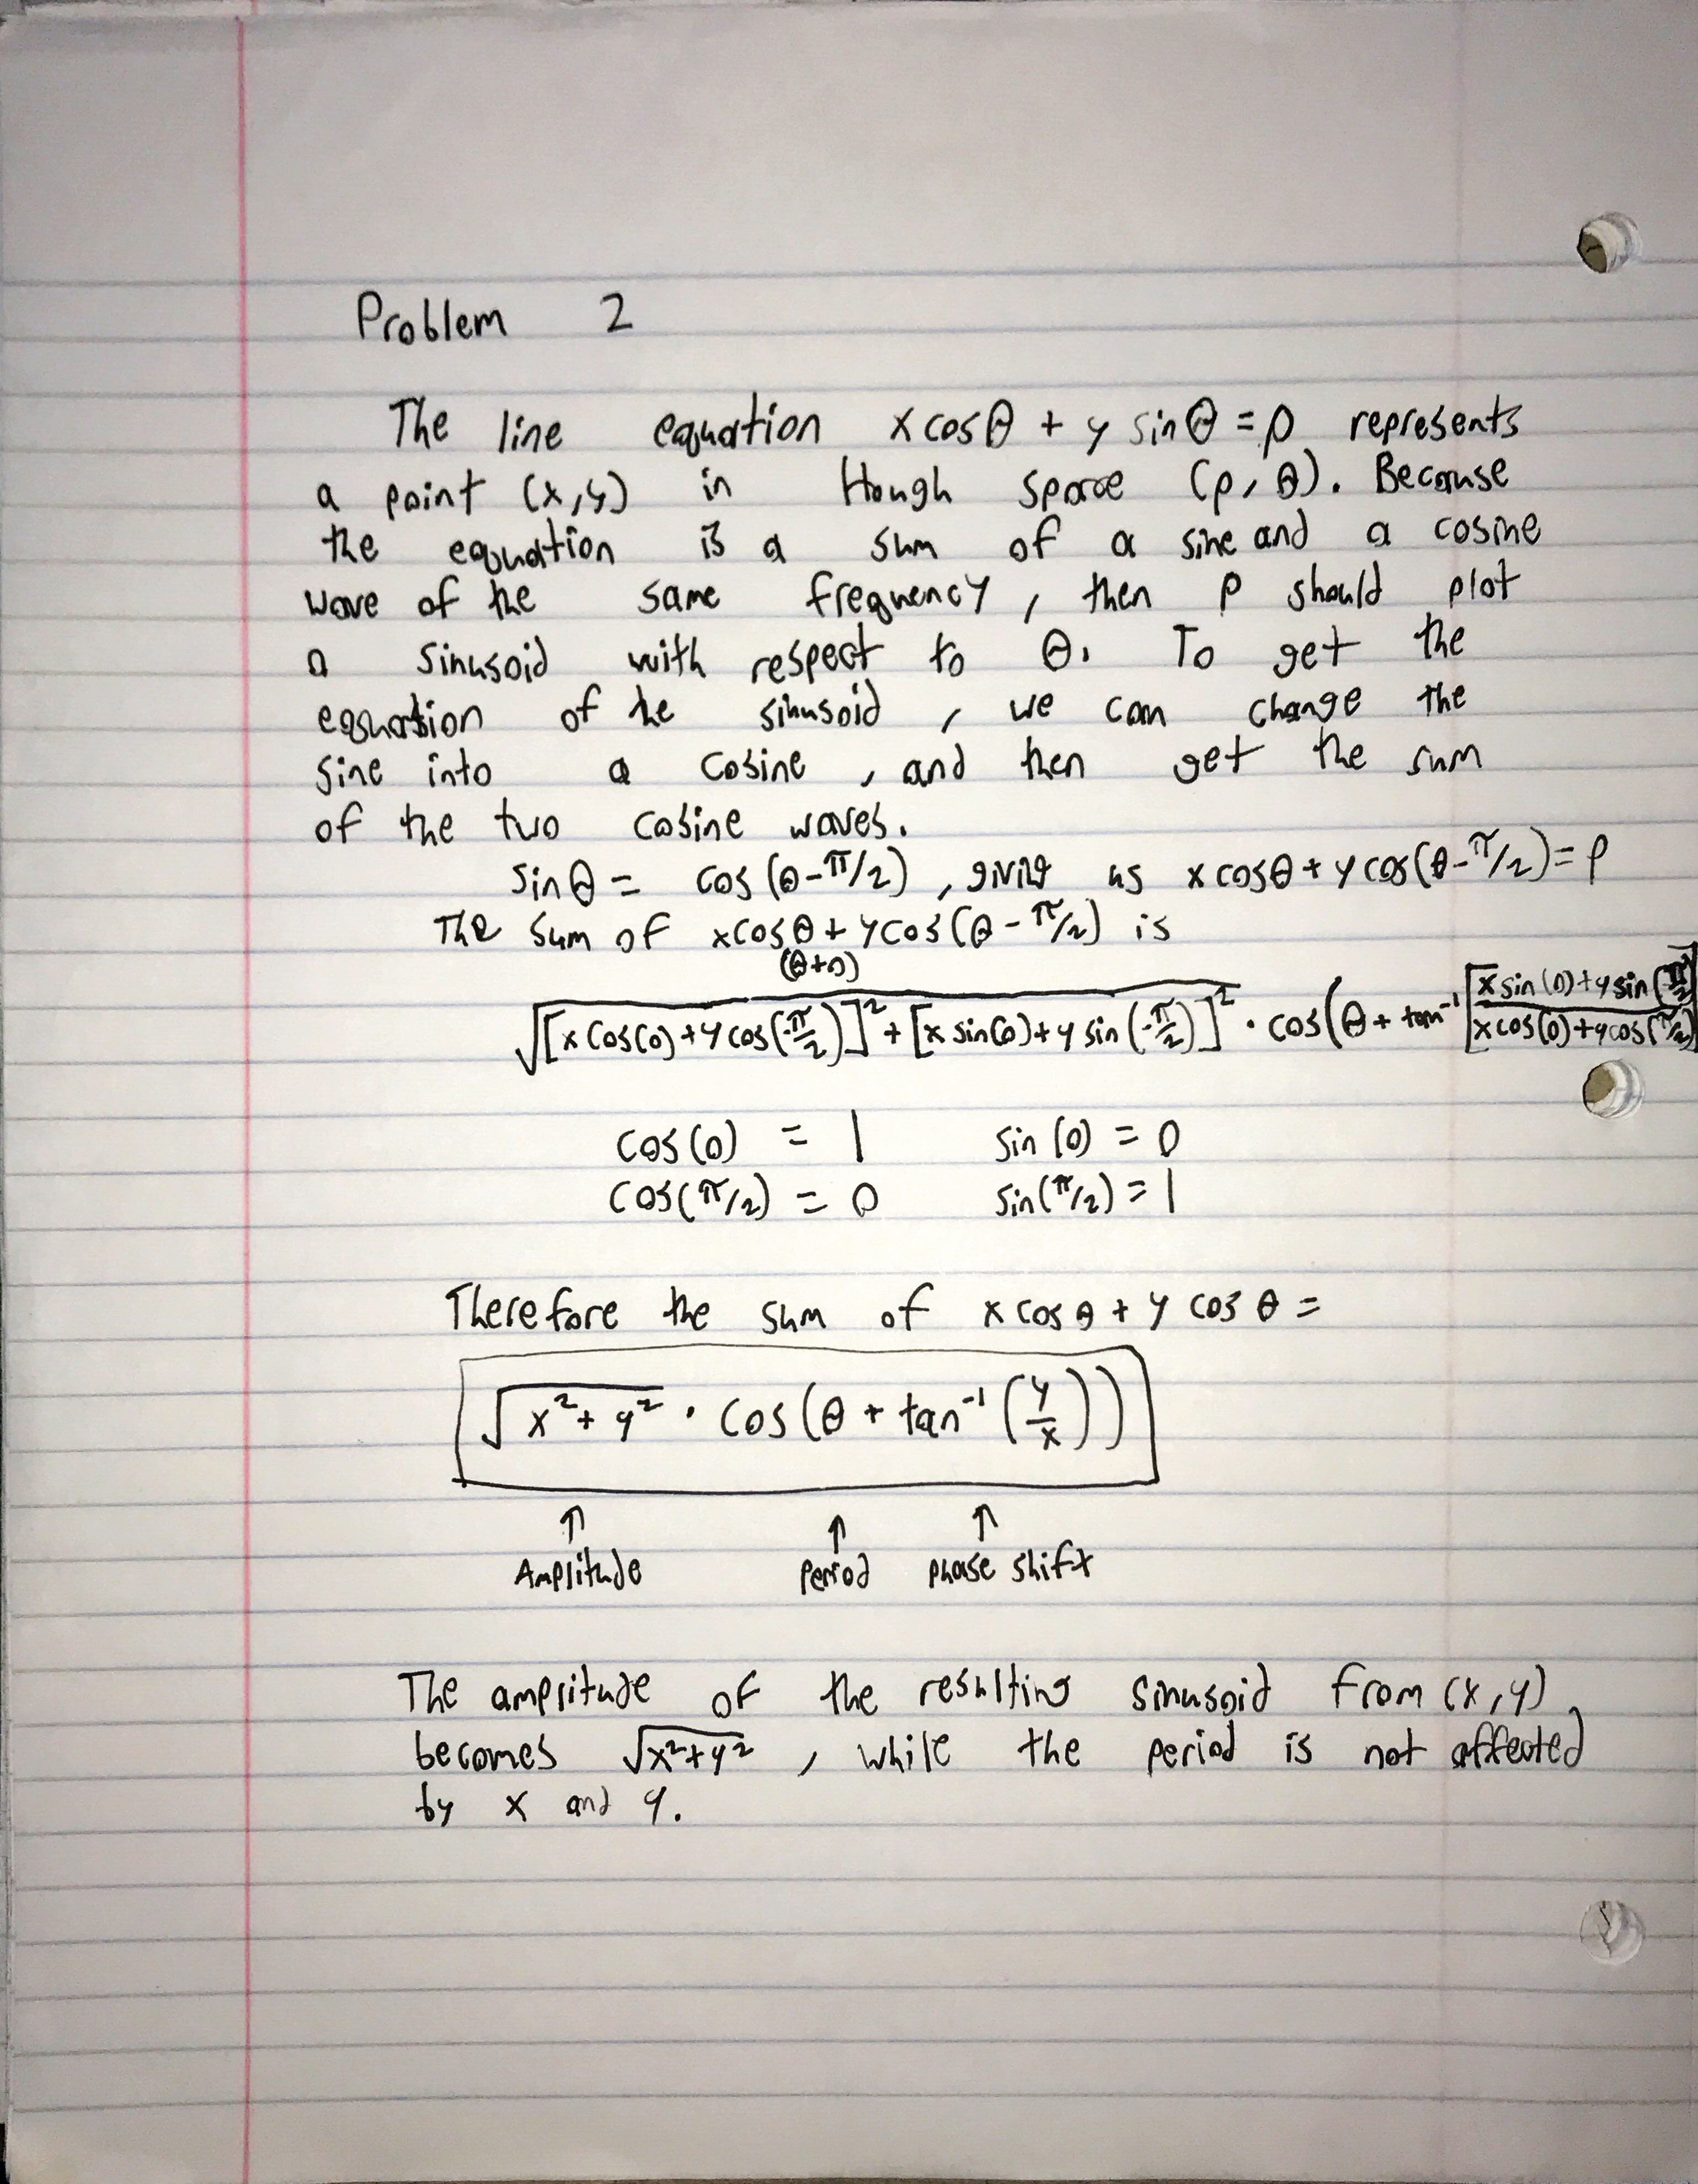 Problem 2
The line equation x cosθ + y sinθ = ρ represents
a point (x,y) in Hough space (ρ, θ). Because
the equation is a sum of a sine and a cosine
wave of the same frequency, then ρ should plot
a sinusoid with respect to θ. To get the
equation of the sinusoid, we can change the
sine into a cosine, and then get the sum
of the two cosine waves.
sinθ = cos(θ-π/2), giving us x cosθ + y cos(θ-π/2) = ρ
The sum of x cosθ + y cos(θ-π/2) is
(θ+0)
√([x cos(0) + y cos(-π/2)]² + [x sin(0) + y sin(-π/2)]²) · cos(θ + tan⁻¹[(x sin(0) + y sin(π/2))/(x cos(0) + y cos(π/2))
cos(0) = 1 sin(0) = 0
cos(π/2) = 0 sin(π/2) = 1
Therefore the sum of x cosθ + y cosθ =
√(x² + y²) · cos(θ + tan⁻¹(y/x))
↑ ↑ ↑
Amplitude Period phase shift
The amplitude of the resulting sinusoid from (x,y)
becomes √(x²+y²), while the period is not affected
by x and y.